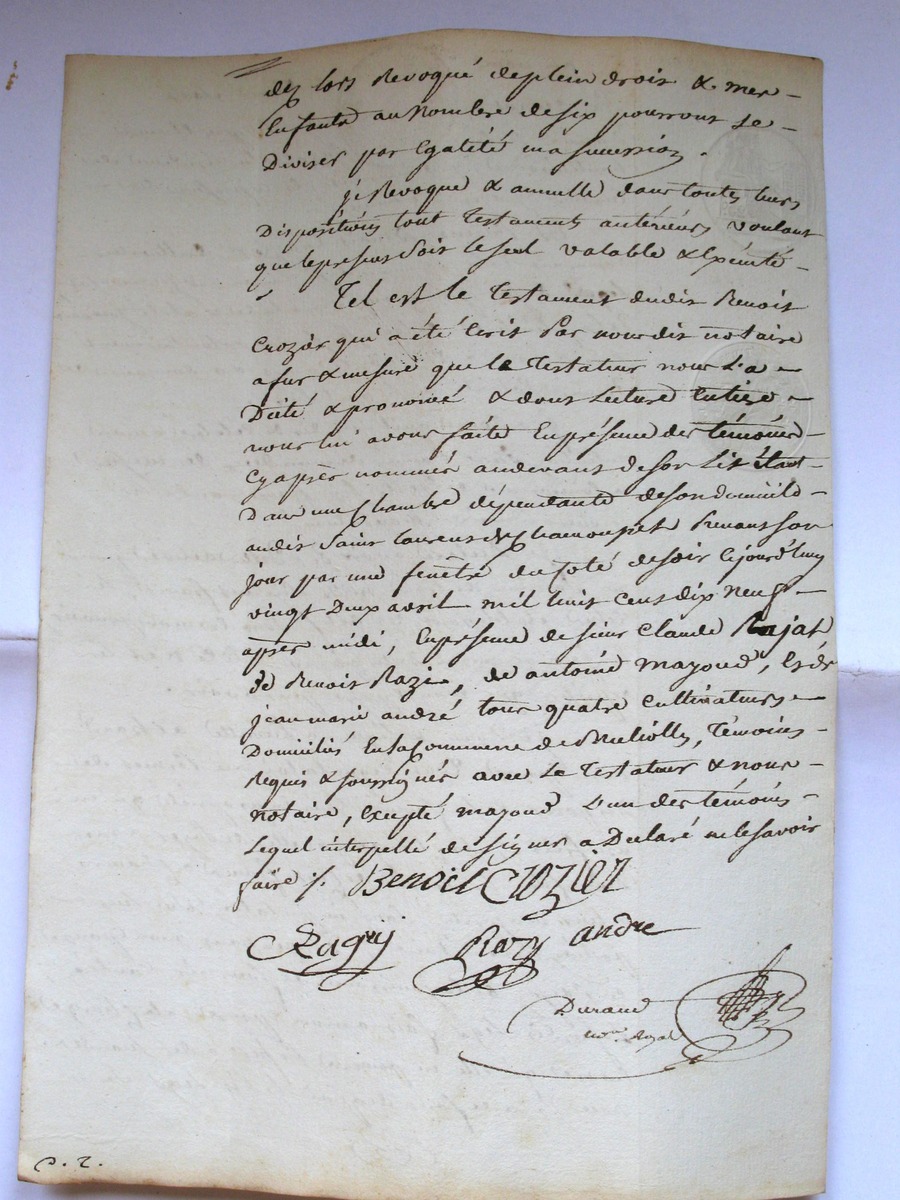 dez lors Revoqué de plein droit & mes
Enfants au Nombre de six pourront se
Diviser par Egalité ma succession.
je Revoque & annulle dans toutes leurs
Dispositions tout Testaments antérieurs voulant
que le présent soit le seul valable & Exécuté
Tel est le Testament dudit Benoit
Crozier qui a été Ecrit Par nous dit notaire
a fur & mesure que le Testateur nous l'a
Dicté & prononcé & dont Lecture Entiere
nous lui avons faite En présence des témoins
Cy après nommés au devant de son Lit étant
Dans une Chambre dépendante de son domicile
audit Saint Laurent de Chamousset Prenant son
jour par une fenêtre du Coté de soir Cejourd'huy
vingt Deux avril mil huit Cent dix neuf
après midi, En présence de sieur Claude
de Benoit Razi, de antoine mayoud, & de
jean marie andré tous quatre Cultivateurs
Domiciliés En la Commune de, Témoins
Requis & soussignés avec Le Testateur & nous
notaire, Excepté mayoud L'un des témoins
Lequel interpellé de signer a Declaré ne le savoir
faire ./.
Benoit Crozier
Razy andre
Durand
no.re Royal